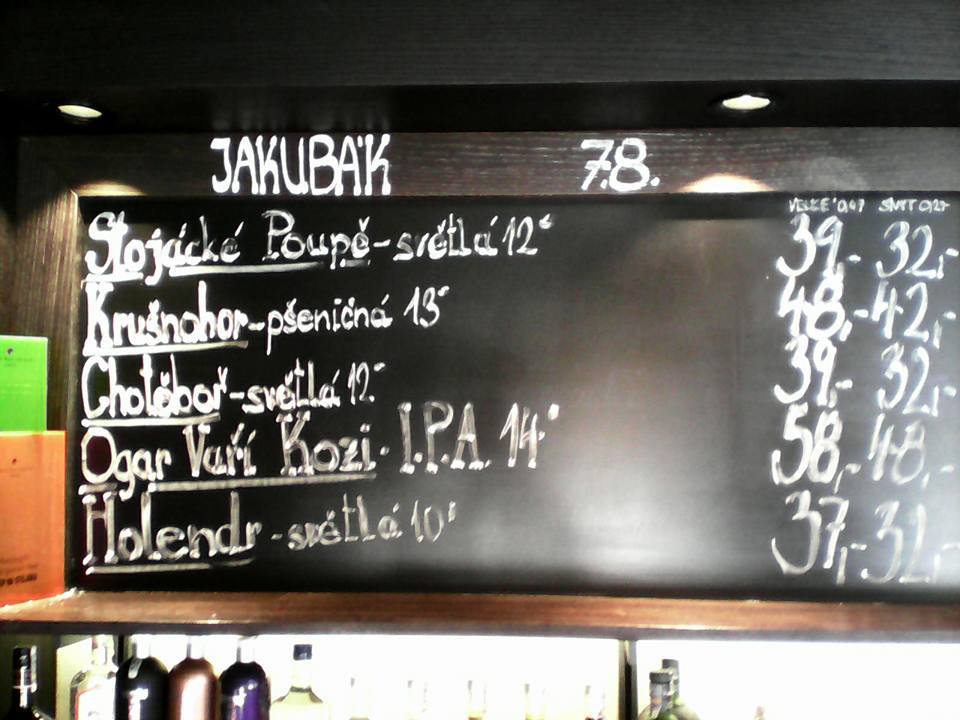 JAKUBÁK 7.8.
VELKÉ 0,4l SNÍT 0,2l
Stojácké Poupě - světlá 12° 39,- 32,-
Krušnohor - pšeničná 13° 48,- 42,-
Chotěboř - světlá 12° 39,- 32,-
Ogar Vaří Kozi - I.P.A. 14° 58,- 48,-
Holendr - světlá 10° 37,- 32,-